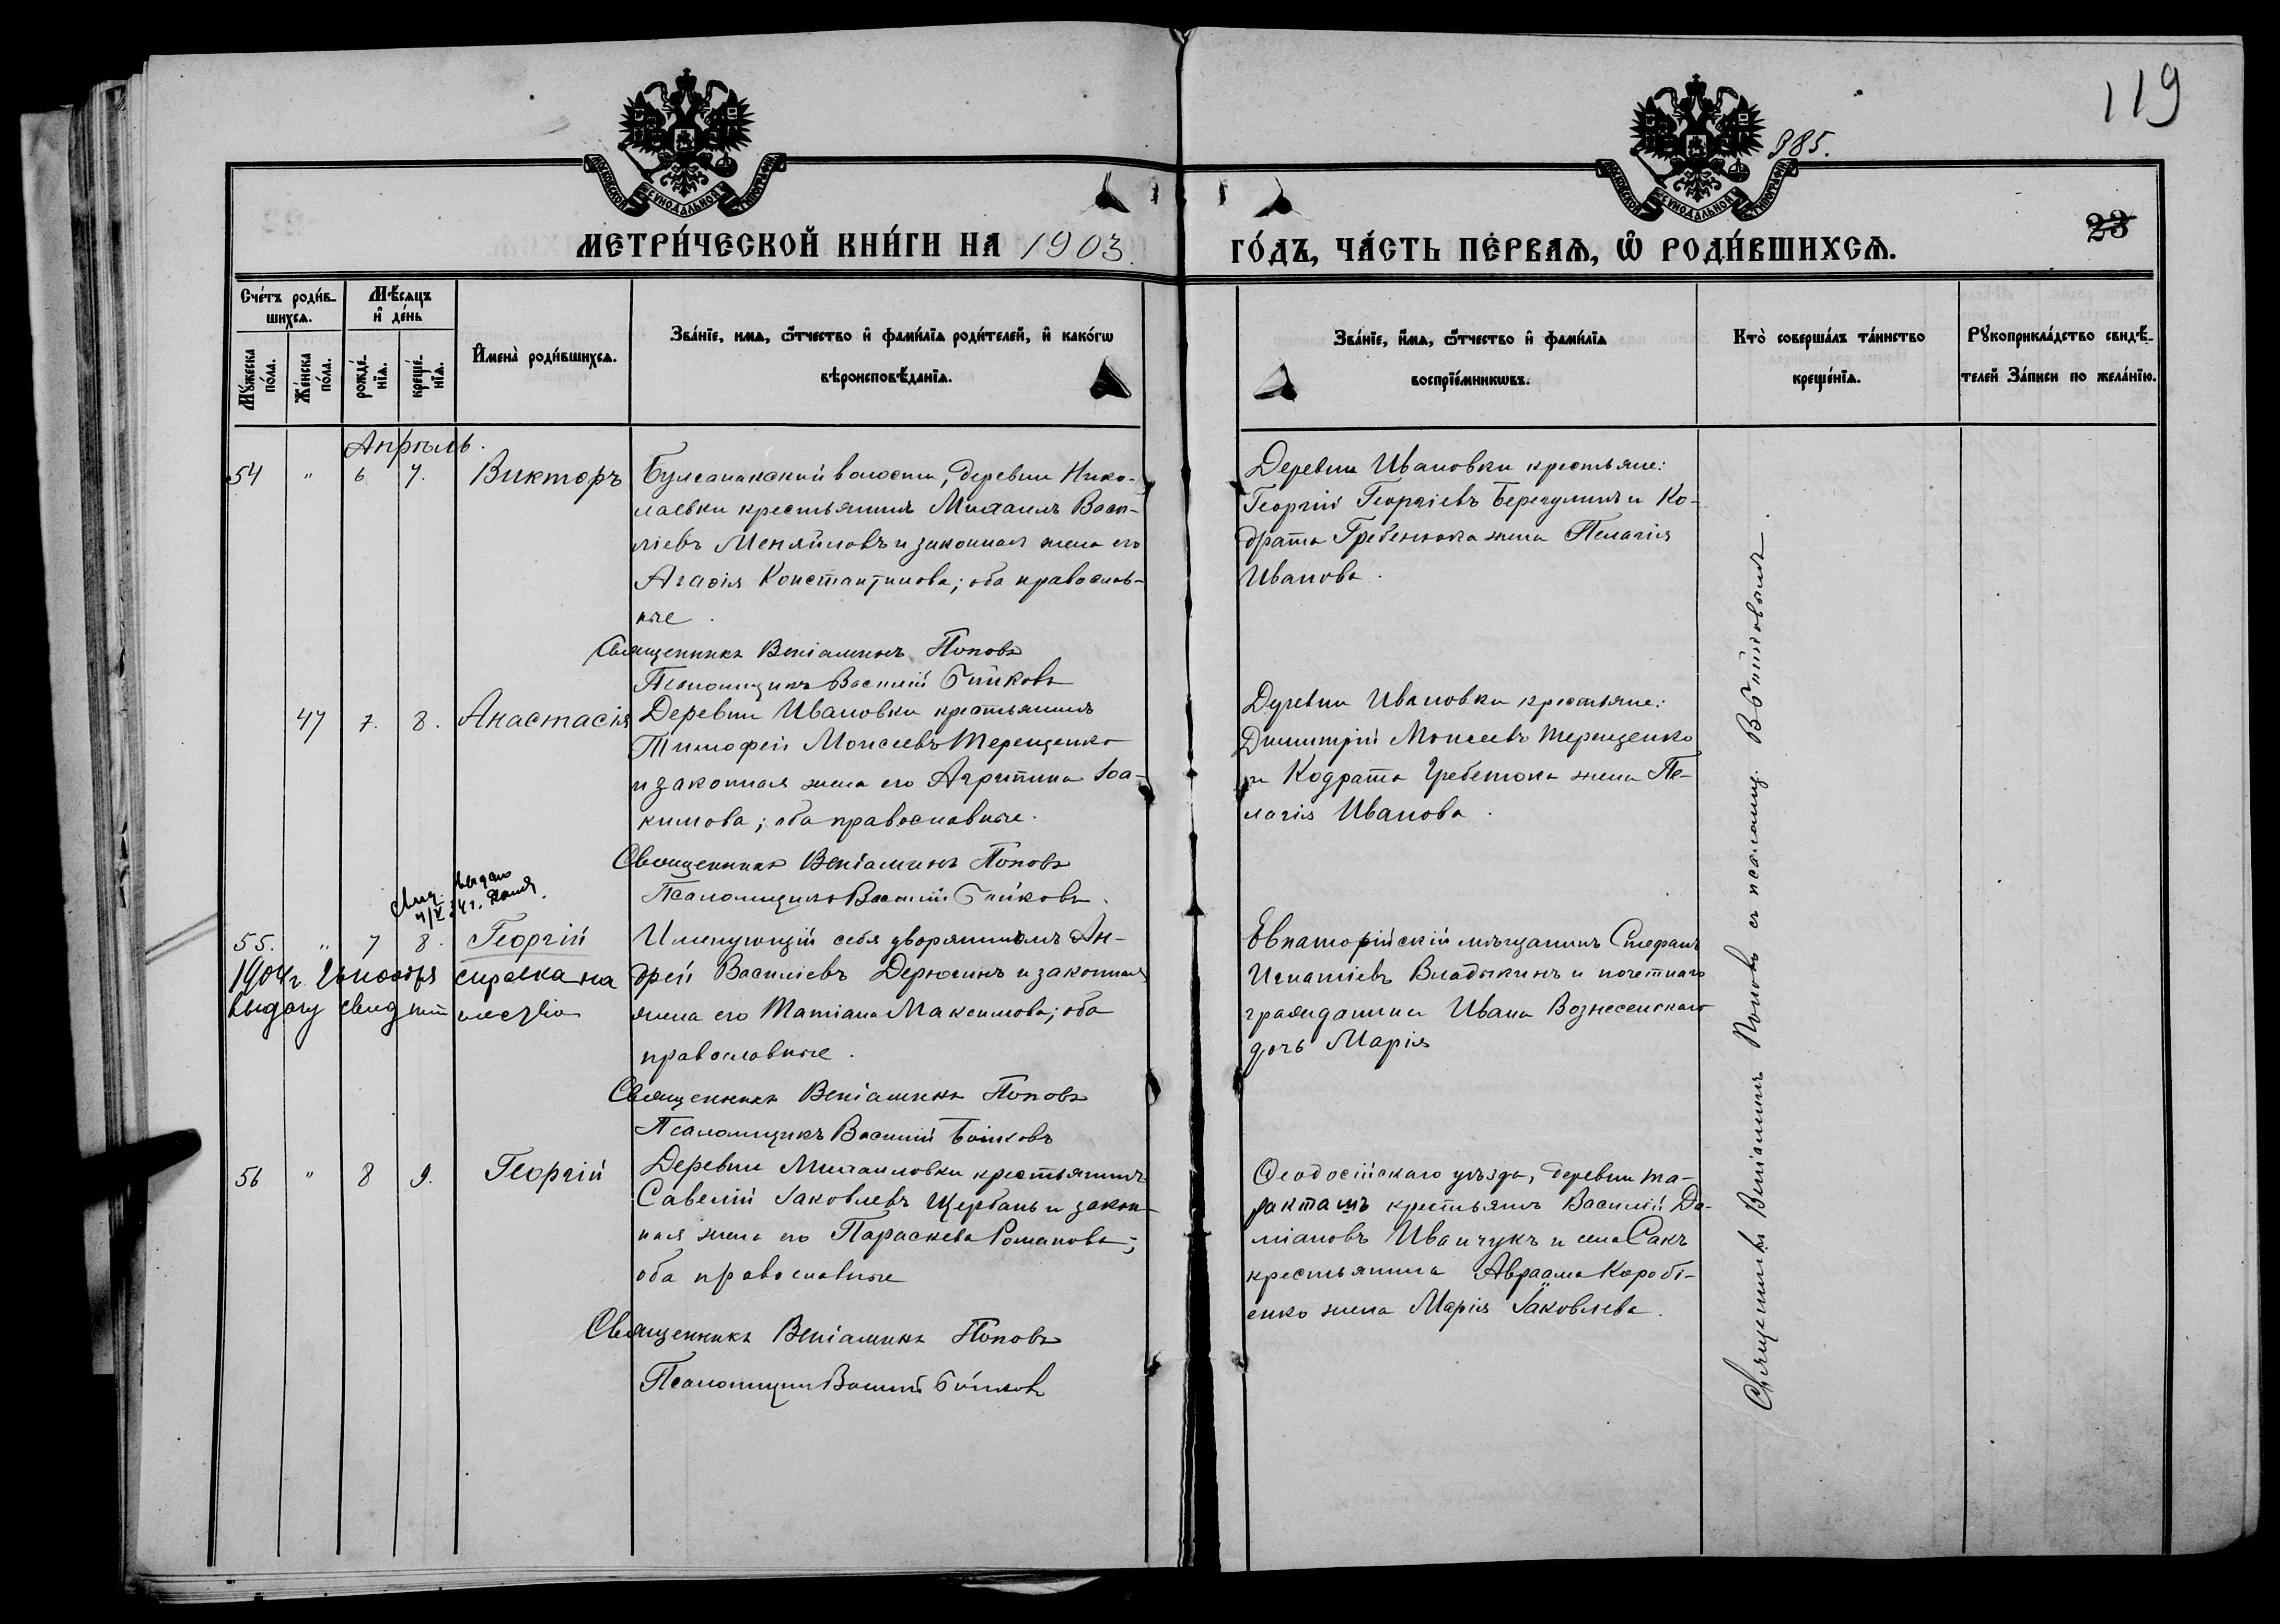 119
985.
МОСКОВСКОЙ СѴНОДАЛЬНОЙ ТИПОГРАФІИ
МОСКОВСКОЙ СѴНОДАЛЬНОЙ ТИПОГРАФІИ
23
МЕТРИ́ЧЕСКОЙ КНИ́ГИ НА 1903.
ГО́ДЪ, ЧА́СТЬ ПЕ́РВАѦ, Ѡ҆ РОДИ́ВШИХСѦ.
Сче́тъ роди́в-
шихсѧ.
Му́жеска по́ла.
Же́нска по́ла.
Мѣ́сѧцъ
и҆ де́нь
рожде́-
нїѧ.
креще́-
нїѧ.
И҆мена̀ роди́вшихсѧ.
Зва́нїе, имѧ, ѻ҆́тчество и҆ фами́лїѧ роди́телей, и҆ како́гѡ
вѣроисповѣ́данїѧ.
Зва́нїе, и҆́мѧ, ѻ҆́тчество и҆ фами́лїѧ
воспрїе́мникѡвъ.
Кто̀ соверша́лъ та́инство
креще́нїѧ.
Рꙋкоприкла́дство свидѣ́-
телей За́писи по жела́нїю.
Апрѣль.
54 " 6 7. Викторъ
Булганакской волости, деревни Нико-
лаевки крестьянинъ Михаилъ Васи-
ліевъ Меняйловъ и законная жена его
Агаѳія Константинова; оба православ-
ные.
Священникъ Веніаминъ Поповъ
Псаломщикъ Василій Бойковъ
Деревни Ивановки крестьяне:
Георгій Георгіевъ и Ко-
драта Гребенюка жена Пелагія
Иванова.
47 7. 8. Анастасія
Деревни Ивановки крестьянинъ
Тимофей Моисеевъ Терещенко
и законная жена его Агрипина Іоа-
кимова; оба православные.
Священникъ Веніаминъ Поповъ
Псаломщикъ Василій Бойковъ.
Деревни Ивановки крестьяне:
Димитрій Моисеевъ Терещенко
и Кодрата Гребенюка жена Пе-
лагія Иванова.
выдано
55. " 7 8. Георгій
1904 г. ноября справка на
выдачу
Именующій себя дворяниномъ Ан-
дрей Василіевъ Дерюгинъ и законная
жена его Татіана Максимова; оба
православные.
Священникъ Веніаминъ Поповъ
Псаломщикъ Василій Бойковъ
Евпаторійскій мѣщанинъ Стефанъ
Игнатіевъ Владыкинъ и почетнаго
гражданина Ивана Вознесенскаго
дочь Марія
56 " 8 9. Георгій
Деревни Михаиловки крестьянинъ
Савелій Іаковлевъ Щербань и закон-
ная жена его Параскева Романова;
оба православные
Священникъ Веніаминъ Поповъ
Псаломщикъ Василій Бойковъ
Ѳеодосійскаго уѣзда, деревни Та-
ракташъ крестьянинъ Василій Да-
міановъ Иванчукъ и села Сакъ
крестьянина Авраама Коробі-
енко жена Марія Іаковлева.
Священникъ Веніаминъ Поповъ съ псаломщ. В. Бойковымъ.